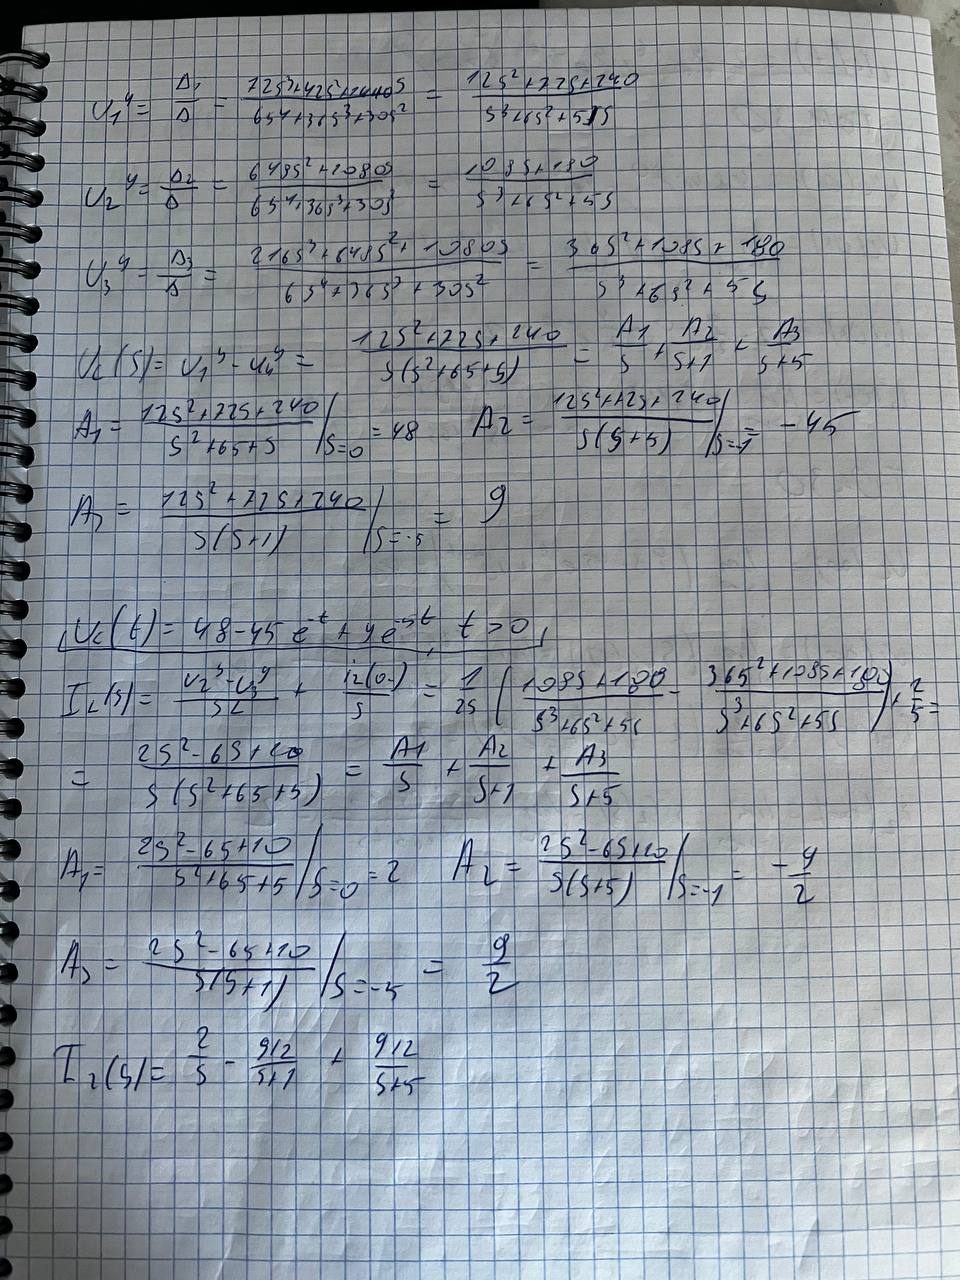 U₁ʸ = Δ₁/Δ = (72s³+42s²+1440s)/(6s⁴+36s³+30s²) = (12s²+72s+240)/(s³+6s²+5s)
U₂ʸ = Δ₂/Δ = (648s²+1080s)/(6s⁴+36s³+30s²) = (108s+180)/(s³+6s²+5s)
U₃ʸ = Δ₃/Δ = (216s³+648s²+1080s)/(6s⁴+36s³+30s²) = (36s²+108s+180)/(s³+6s²+5s)
Uc(s) = U₁ʸ - U₄ʸ = (12s²+72s+240)/(s(s²+6s+5)) = A₁/s + A₂/(s+1) + A₃/(s+5)
A₁ = (12s²+72s+240)/(s²+6s+5) |s=0 = 48 A₂ = (12s²+72s+240)/(s(s+5)) |s=-1 = -45
A₃ = (12s²+72s+240)/(s(s+1)) |s=-5 = 9
Uc(t) = 48-45e^-t + 9e^-5t, t>0
I_L(s) = (U₂ʸ-U₃ʸ)/(sL) + i_L(0-)/s = 1/2s ((108s+180)/(s³+6s²+5s) - (36s²+108s+180)/(s³+6s²+5s)) + 2/s =
= (2s²-6s+10)/(s(s²+6s+5)) = A1/s + A2/(s+1) + A3/(s+5)
A₁ = (2s²-6s+10)/(s²+6s+5) |s=0 = 2 A₂ = (2s²-6s+10)/(s(s+5)) |s=-1 = -9/2
A₃ = (2s²-6s+10)/(s(s+1)) |s=-5 = 9/2
I_L(s) = 2/s - (9/2)/(s+1) + (9/2)/(s+5)